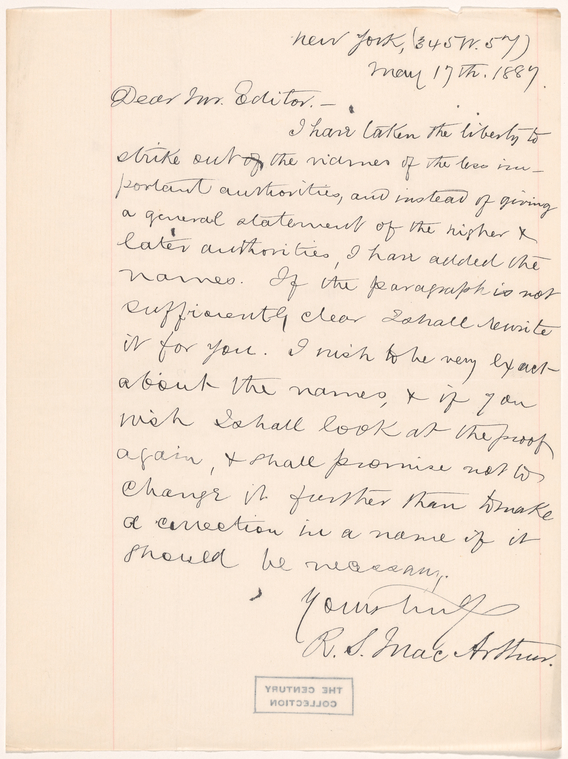 New York, (345 W. 57)
May 17th. 1887.
Dear Mr. Editor. —
I have taken the liberty to
strike out of the names of the less im-
portant authorities, and instead of giving
a general statement of the higher &
later authorities, I have added the
names. If the paragraph is not
sufficiently clear I shall rewrite
it for you. I wish to be very exact
about the names, & if you
wish I shall look at the proof
again, & shall promise not to
change it further than to make
a correction in a name if it
should be necessary.
Yours truly
R. S. Mac Arthur.
THE CENTURY
COLLECTION